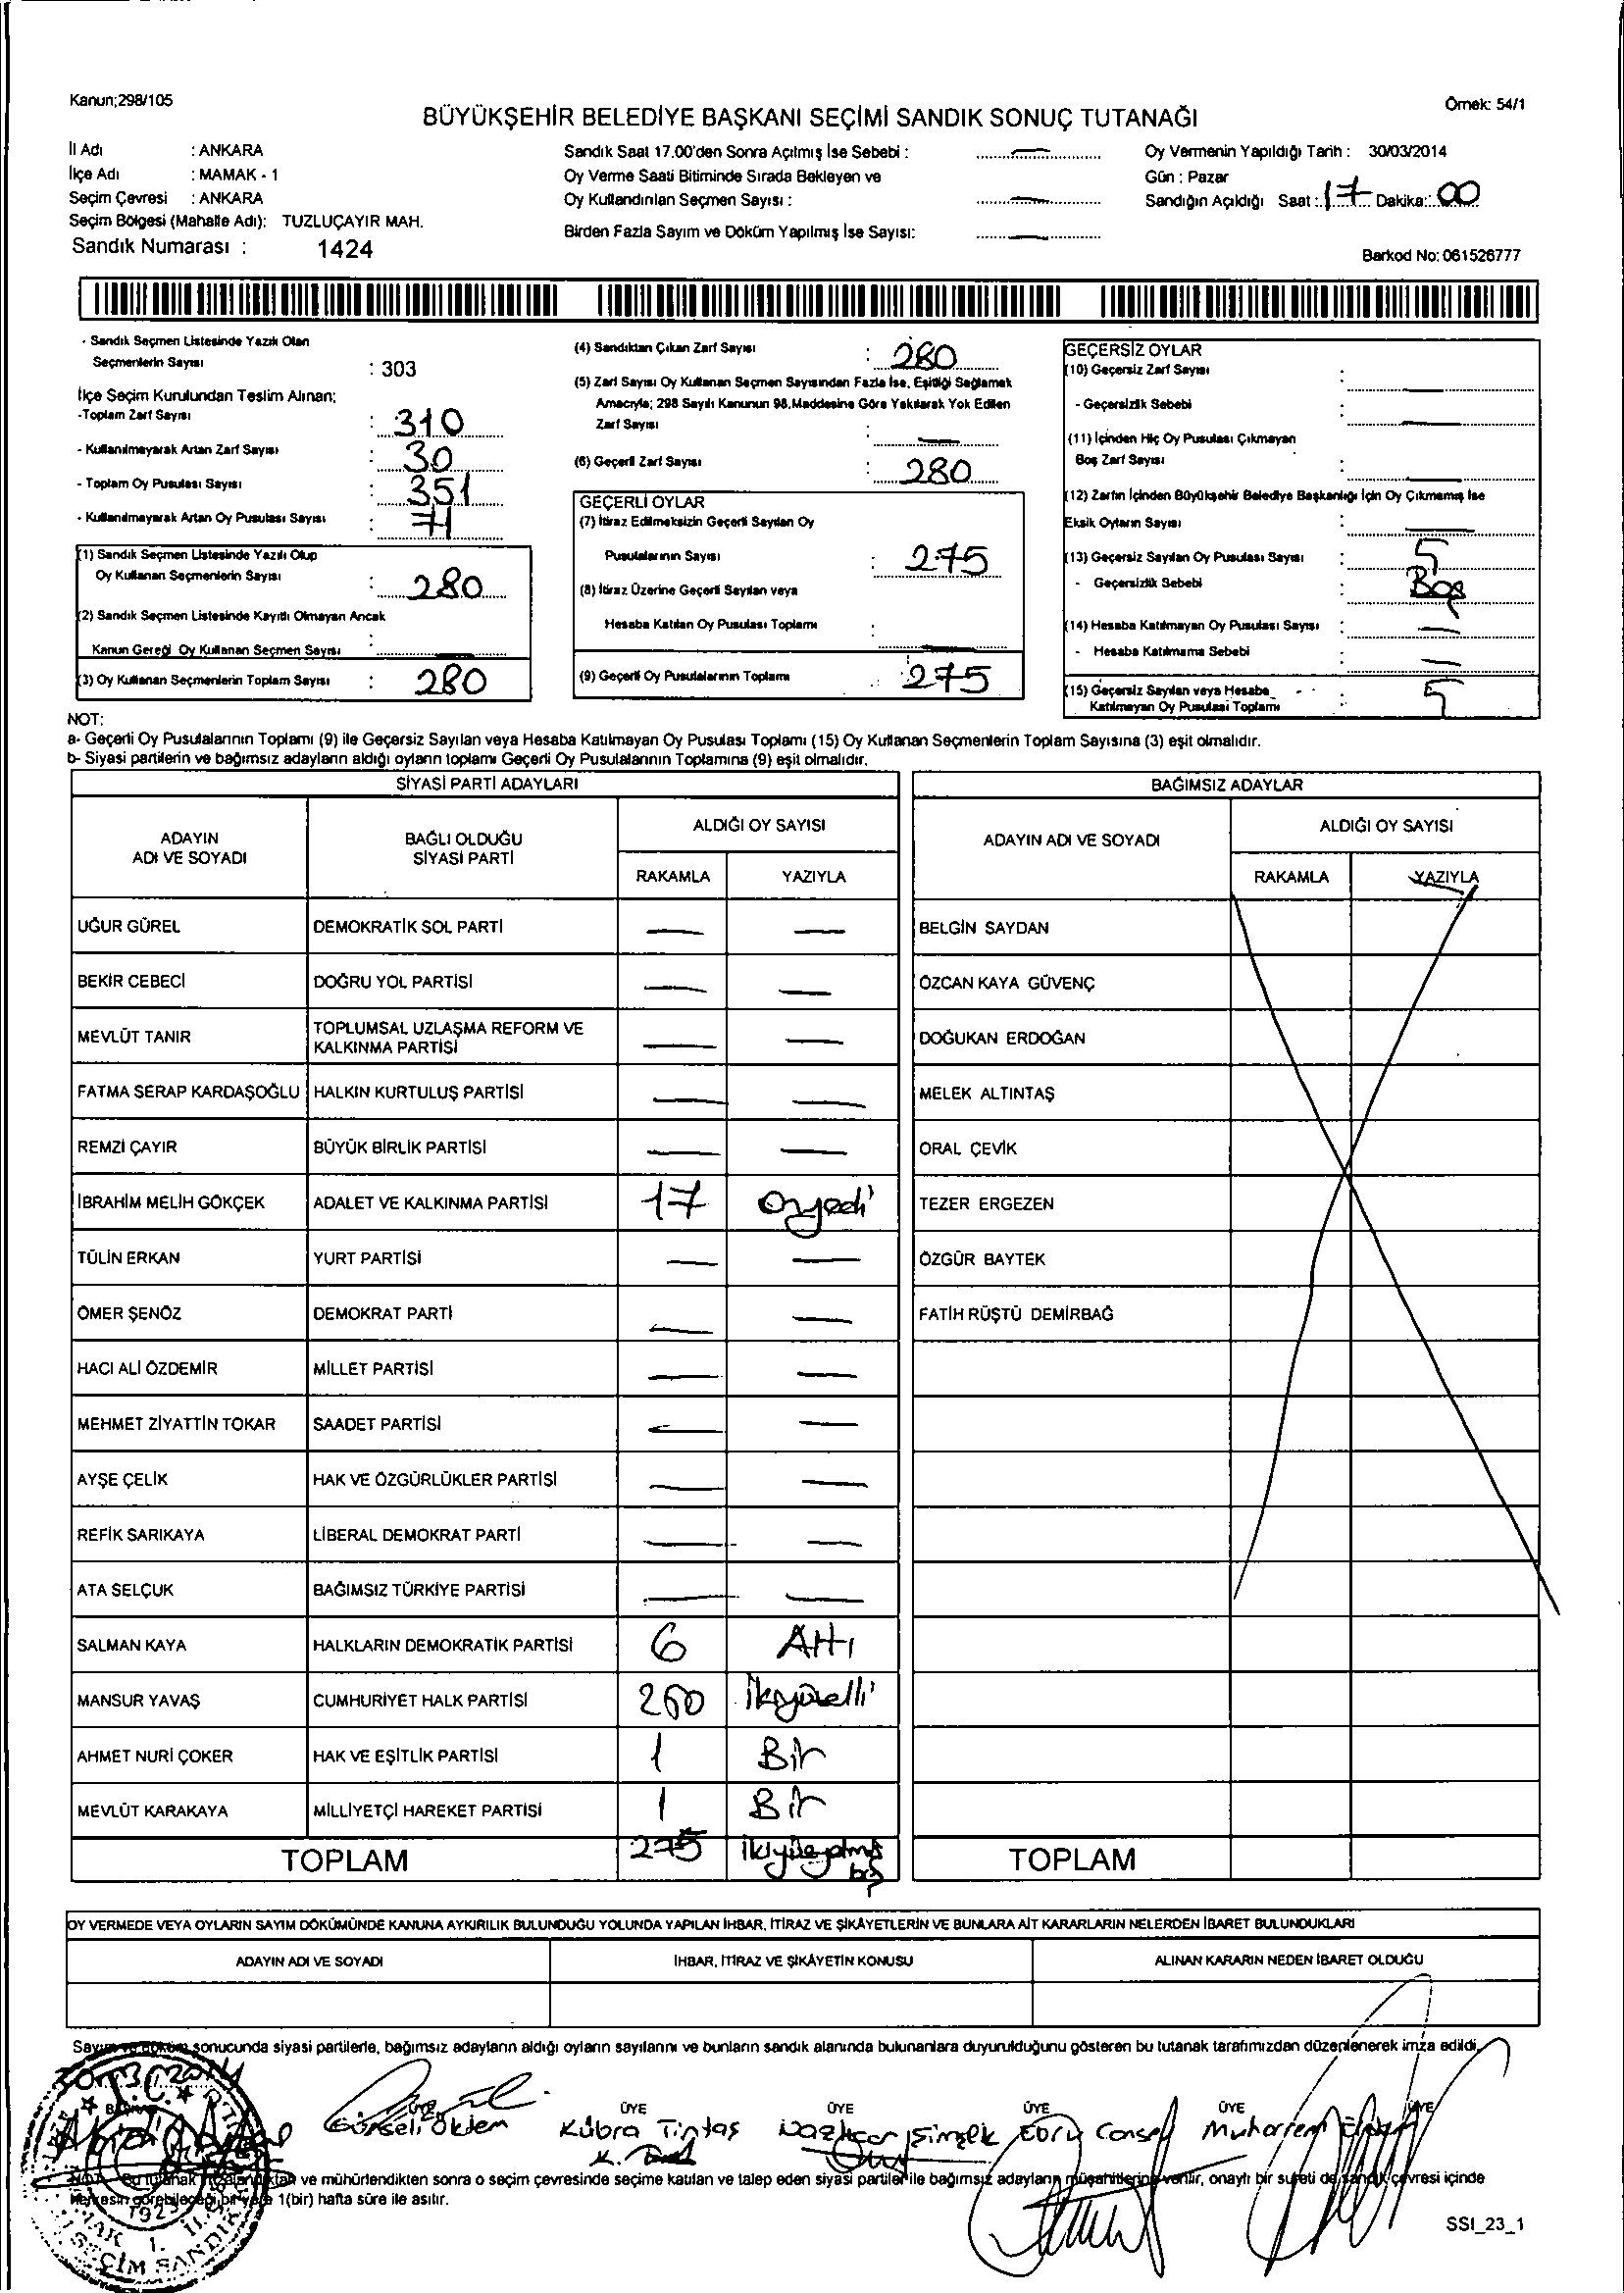 Kanun;298/105
Örnek: 54/1
BÜYÜKŞEHİR BELEDİYE BAŞKANI SEÇİMİ SANDIK SONUÇ TUTANAĞI
İl Adı : ANKARA
İlçe Adı : MAMAK - 1
Seçim Çevresi : ANKARA
Seçim Bölgesi (Mahalle Adı): TUZLUÇAYIR MAH.
Sandık Numarası : 1424
Sandık Saat 17.00'den Sonra Açılmış İse Sebebi : —
Oy Verme Saati Bitiminde Sırada Bekleyen ve
Oy Kullandırılan Seçmen Sayısı : —
Birden Fazla Sayım ve Döküm Yapılmış İse Sayısı: —
Oy Vermenin Yapıldığı Tarih : 30/03/2014
Gün : Pazar
Sandığın Açıldığı Saat : 17 Dakika: 00
Barkod No: 061526777
- Sandık Seçmen Listesinde Yazılı Olan
Seçmenlerin Sayısı : 303
İlçe Seçim Kurulundan Teslim Alınan;
-Toplam Zarf Sayısı : 310
- Kullanılmayarak Artan Zarf Sayısı : 30
- Toplam Oy Pusulası Sayısı : 351
- Kullanılmayarak Artan Oy Pusulası Sayısı : 71
(1) Sandık Seçmen Listesinde Yazılı Olup
Oy Kullanan Seçmenlerin Sayısı : 280
(2) Sandık Seçmen Listesinde Kayıtlı Olmayan Ancak
Kanun Gereği Oy Kullanan Seçmen Sayısı : —
(3) Oy Kullanan Seçmenlerin Toplam Sayısı : 280
(4) Sandıktan Çıkan Zarf Sayısı : 280
(5) Zarf Sayısı Oy Kullanan Seçmen Sayısından Fazla İse, Eşitliği Sağlamak
Amacıyla; 298 Sayılı Kanunun 98.Maddesine Göre Yakılarak Yok Edilen
Zarf Sayısı : —
(6) Geçerli Zarf Sayısı : 280
GEÇERLİ OYLAR
(7) İtiraz Edilmeksizin Geçerli Sayılan Oy
Pusulalarının Sayısı : 275
(8) İtiraz Üzerine Geçerli Sayılan veya
Hesaba Katılan Oy Pusulası Toplamı : —
(9) Geçerli Oy Pusulalarının Toplamı : 275
GEÇERSİZ OYLAR
(10) Geçersiz Zarf Sayısı : —
- Geçersizlik Sebebi : —
(11) İçinden Hiç Oy Pusulası Çıkmayan
Boş Zarf Sayısı : —
(12) Zarfın İçinden Büyükşehir Belediye Başkanlığı İçin Oy Çıkmamış İse
Eksik Oyların Sayısı : —
(13) Geçersiz Sayılan Oy Pusulası Sayısı : 5
- Geçersizlik Sebebi : Boş
(14) Hesaba Katılmayan Oy Pusulası Sayısı : —
- Hesaba Katılmama Sebebi : —
(15) Geçersiz Sayılan veya Hesaba
Katılmayan Oy Pusulası Toplamı : 5
NOT:
a- Geçerli Oy Pusulalarının Toplamı (9) ile Geçersiz Sayılan veya Hesaba Katılmayan Oy Pusulası Toplamı (15) Oy Kullanan Seçmenlerin Toplam Sayısına (3) eşit olmalıdır.
b- Siyasi partilerin ve bağımsız adayların aldığı oyların toplamı Geçerli Oy Pusulalarının Toplamına (9) eşit olmalıdır.
SİYASİ PARTİ ADAYLARI
ADAYIN
ADI VE SOYADI
BAĞLI OLDUĞU
SİYASİ PARTİ
ALDIĞI OY SAYISI
RAKAMLA YAZIYLA
UĞUR GÜREL DEMOKRATİK SOL PARTİ — —
BEKİR CEBECİ DOĞRU YOL PARTİSİ — —
MEVLÜT TANIR TOPLUMSAL UZLAŞMA REFORM VE
KALKINMA PARTİSİ — —
FATMA SERAP KARDAŞOĞLU HALKIN KURTULUŞ PARTİSİ — —
REMZİ ÇAYIR BÜYÜK BİRLİK PARTİSİ — —
İBRAHİM MELİH GÖKÇEK ADALET VE KALKINMA PARTİSİ 17 Onyedi
TÜLİN ERKAN YURT PARTİSİ — —
ÖMER ŞENÖZ DEMOKRAT PARTİ — —
HACI ALİ ÖZDEMİR MİLLET PARTİSİ — —
MEHMET ZİYATTİN TOKAR SAADET PARTİSİ — —
AYŞE ÇELİK HAK VE ÖZGÜRLÜKLER PARTİSİ — —
REFİK SARIKAYA LİBERAL DEMOKRAT PARTİ — —
ATA SELÇUK BAĞIMSIZ TÜRKİYE PARTİSİ — —
SALMAN KAYA HALKLARIN DEMOKRATİK PARTİSİ 6 Altı
MANSUR YAVAŞ CUMHURİYET HALK PARTİSİ 250 İkiyüzelli
AHMET NURİ ÇOKER HAK VE EŞİTLİK PARTİSİ 1 Bir
MEVLÜT KARAKAYA MİLLİYETÇİ HAREKET PARTİSİ 1 Bir
TOPLAM 275 ikiyüzyetmiş
beş
BAĞIMSIZ ADAYLAR
ADAYIN ADI VE SOYADI
ALDIĞI OY SAYISI
RAKAMLA YAZIYLA
BELGİN SAYDAN
ÖZCAN KAYA GÜVENÇ
DOĞUKAN ERDOĞAN
MELEK ALTINTAŞ
ORAL ÇEVİK
TEZER ERGEZEN
ÖZGÜR BAYTEK
FATİH RÜŞTÜ DEMİRBAĞ
TOPLAM
OY VERMEDE VEYA OYLARIN SAYIM DÖKÜMÜNDE KANUNA AYKIRILIK BULUNDUĞU YOLUNDA YAPILAN İHBAR, İTİRAZ VE ŞİKÂYETLERİN VE BUNLARA AİT KARARLARIN NELERDEN İBARET BULUNDUKLARI
ADAYIN ADI VE SOYADI İHBAR, İTİRAZ VE ŞİKÂYETİN KONUSU ALINAN KARARIN NEDEN İBARET OLDUĞU
Sayım ve döküm sonucunda siyasi partilerle, bağımsız adayların aldığı oyların sayılarını ve bunların sandık alanında bulunanlara duyurulduğunu gösteren bu tutanak tarafımızdan düzenlenerek imza edildi.
30/03/2014
T.C.
ÜYE ÜYE ÜYE ÜYE ÜYE ÜYE
Gürseli Öktem Kübra Tintaş Nazlıcan Şimşek Ebru Cansel Muharrem
NOT: Bu tutanak imzalandıktan ve mühürlendikten sonra o seçim çevresinde seçime katılan ve talep eden siyasi partiler ile bağımsız adayların müşahitlerine verilir, onaylı bir sureti de sandık çevresi içinde
herkesin görebileceği bir yere 1(bir) hafta süre ile asılır.
1923
SSI_23_1